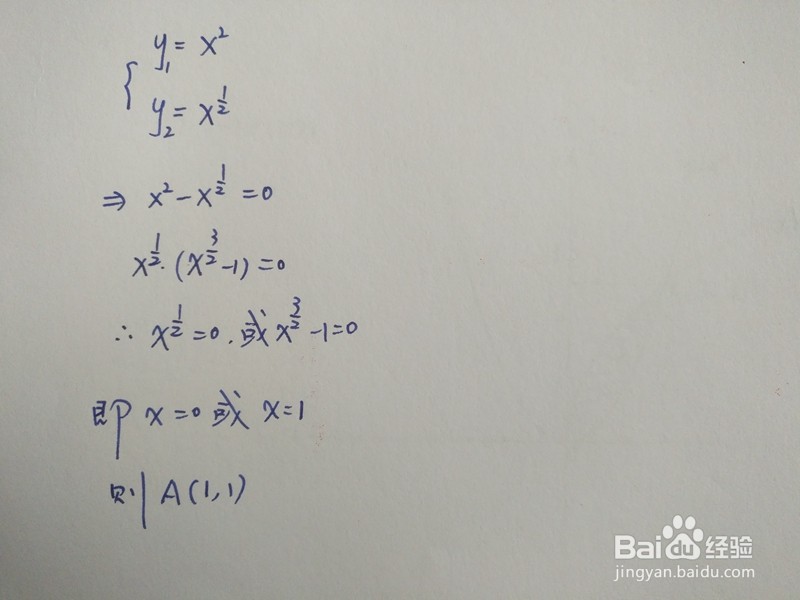 { y₁ = x²
y₂ = x^{1/2}
⇒ x² - x^{1/2} = 0
x^{1/2}·(x^{3/2} - 1) = 0
∴ x^{1/2} = 0, 或 x^{3/2} - 1 = 0
即 x = 0 或 x = 1
则 A(1,1)
Baidu 经验
jingyan.baidu.com